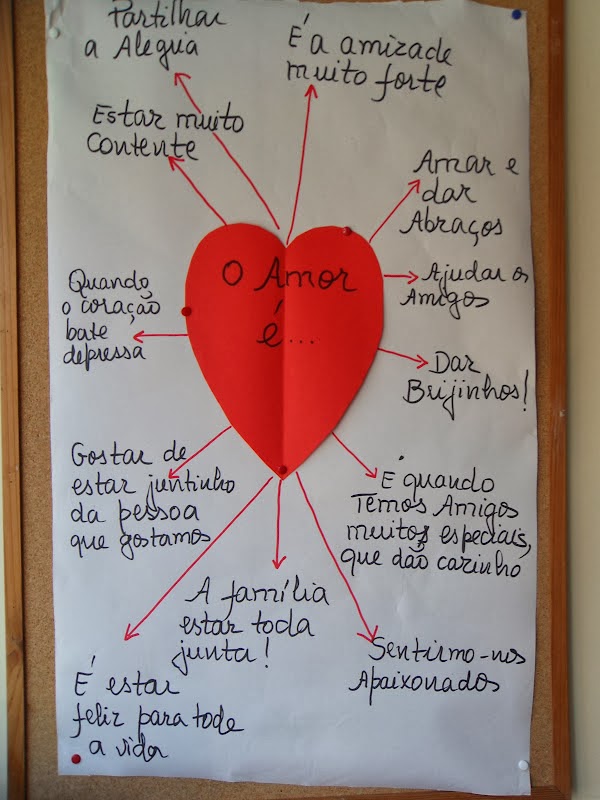 Partilhar
a Alegria
É a amizade
muito forte
Estar muito
Contente
Amar e
dar
Abraços
O Amor
é...
Ajudar os
Amigos
Quando
o coração
bate
depressa
Dar
Brijinhos!
Gostar de
estar juntinho
da pessoa
que gostamos
É quando
Temos Amigos
muitos especiais,
que dão carinho
A família
estar toda
junta!
Sentirmo-nos
Apaixonados
É estar
feliz para tode
a vida